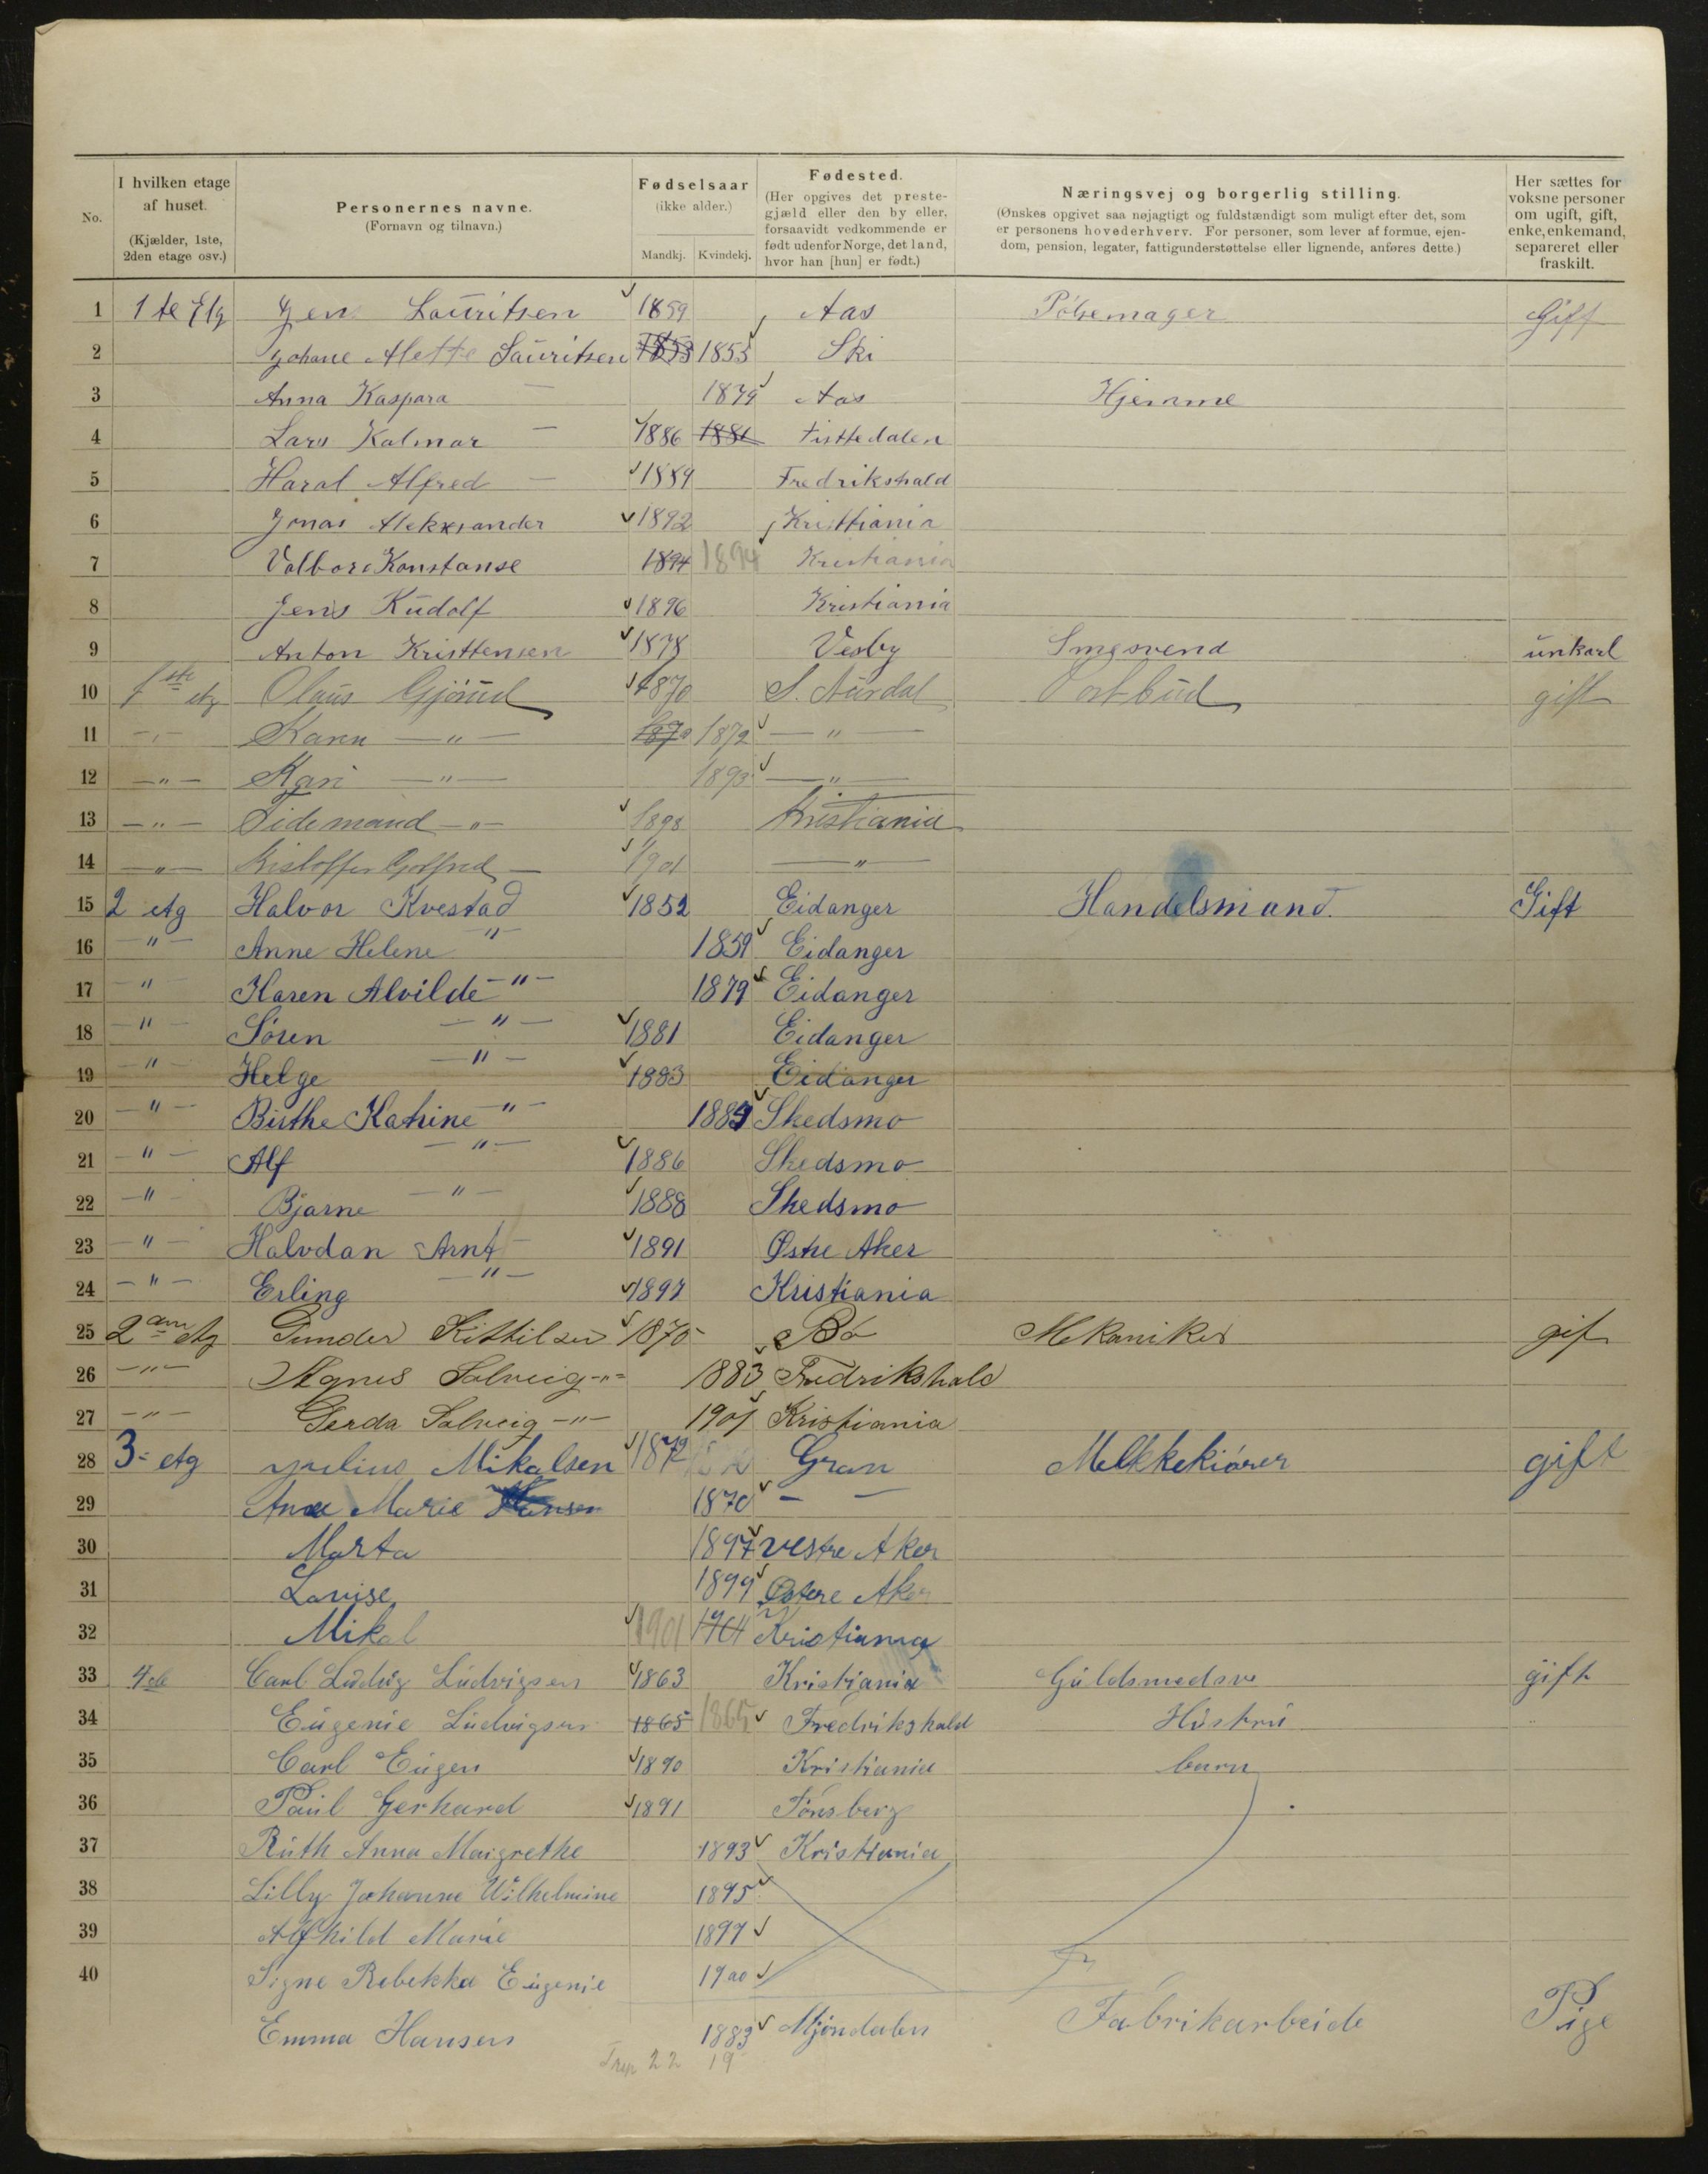 No.
I hvilken etage
af huset.
(Kjælder, 1ste,
2den etage osv.)
Personernes navne.
(Fornavn og tilnavn.)
Fødselsaar
(ikke alder.)
Mandkj. Kvindekj.
Fødested.
(Her opgives det preste-
gjæld eller den by eller,
forsaavidt vedkommende er
født udenfor Norge, det land,
hvor han [hun] er født.)
Næringsvej og borgerlig stilling.
(Ønskes opgivet saa nøjagtigt og fuldstændigt som muligt efter det, som
er personens hovederhverv. For personer, som lever af formue, ejen-
dom, pension, legater, fattigunderstøttelse eller lignende, anføres dette.)
Her sættes for
voksne personer
om ugift, gift,
enke, enkemand,
separeret eller
fraskilt.
1 1 te Etg Jens Lauritsen 1859 Aas Pölsemager Gift
2 Johane Alette Lauritsen 1853 1853 Ski
3 Anna Kaspara — 1879 Aas Hjemme
4 Lars Kalmar — 1886 1886 Tisttedalen
5 Haral Alfred — 1889 Fredrikshald
6 Jonas Aleksander 1892 Kristtiania
7 Valborg Konstanse 1894 1894 Kristiania
8 Jens Rudolf 1896 Kristiania
9 Anton Kristtensen 1878 Vesby Smesvend unkarl
10 1ste etg Olaus Gjørud 1870 S. Aurdal Postbud gift
11 — " — Karen — " — 1870 1872 — " —
12 — " — Kari — " — 1893 — " —
13 — " — Tidemand — " — 1898 Kristiania
14 — " — Kristoffer Gotfred — 1901 — " —
15 2 etg Halvor Kvestad 1852 Eidanger Handelsmand. Gift
16 — " — Anne Helene " 1859 Eidanger
17 — " — Karen Alvilde — " — 1879 Eidanger
18 — " — Søren — " — 1881 Eidanger
19 — " — Helge — " — 1883 Eidanger
20 — " — Birthe Katrine — " — 1885 Skedsmo
21 — " — Alf — " — 1886 Skedsmo
22 — " — Bjarne — " — 1888 Skedsmo
23 — " — Halvdan Arnt — 1891 Østre Aker
24 — " — Erling — " — 1897 Kristiania
25 2 etg Gunder Kittilsen 1875 Bö Mekaniker gift
26 — " — Agnes Solveig — " — 1883 Fredrikshald
27 — " — Gerda Solveig — " — 1901 Kristiania
28 3 etg Julius Mikalsen 1872 Gran Melkkekiører gift
29 Anne Marie Hansen 1870 — —
30 Marta 1897 vestre Aker
31 Lovise 1899 Østere Aker
32 Mikal 1901 1901 Kristiania
33 4de Carl Ludvig Ludvigsen 1863 Kristiania Guldsmedsv gift
34 Eugenie Ludvigsen 1865 1865 Fredrikshald Hustru "
35 Carl Eugen 1890 Kristiania barn
36 Paul Gerhard 1891 Tønsberg
37 Ruth Anna Maigrethe 1893 Kristiania
38 Lilly Johanne Wilhelmine 1895
39 Alfhild Marie 1897
40 Signe Rebekka Eugenie 1900
Emma Hansen 1883 Mjøndalen Fabrikarbeide Pige
22 19